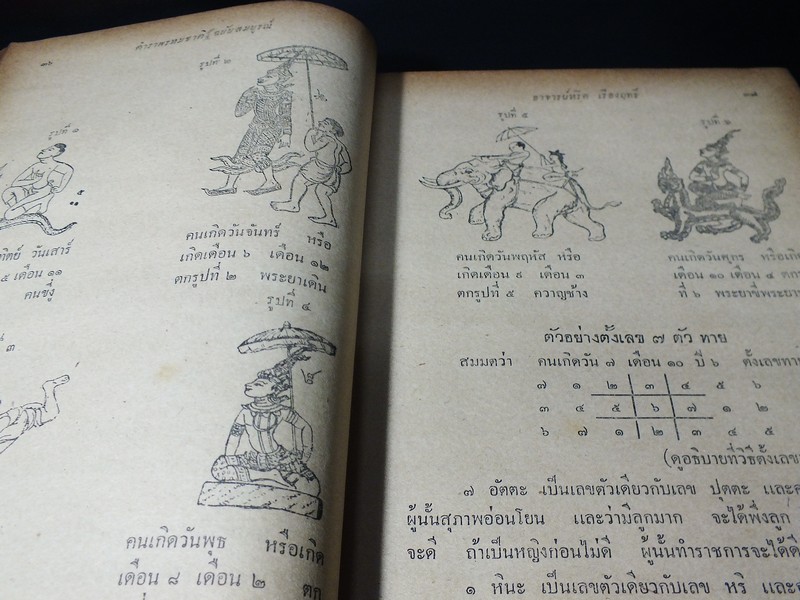 ตำราพรหมชาติฉบับสมบูรณ์
๓๖
รูปที่ ๒
รูปที่ ๑
คนเกิดวันจันทร์ หรือ
เกิดเดือน ๖ เดือน ๑๒
ตกรูปที่ ๒ พระยาเดิน
ทิตย์ วันเสาร์
๕ เดือน ๑๑
คนขงู่
รูปที่ ๔
๓
คนเกิดวันพุธ หรือเกิด
เดือน ๘ เดือน ๒ ตก
อาจารย์หรีด เรืองฤทธิ์
รูปที่ ๕
คนเกิดวันพฤหัส หรือ
เกิดเดือน ๘ เดือน ๓
ตกรูปที่ ๕ ควาญช้าง
รูปที่ ๖
คนเกิดวันศุกร หรือเกิ
เดือน ๑๐ เดือน ๔ ตก
ที่ ๖ พระยาขี่พระยา
ตัวอย่างตั้งเลข ๗ ตัว ทาย
สมมตว่า คนเกิดวัน ๗ เดือน ๑๐ ปี ๖ ตั้งเลขทา
๗ ๑ ๒ ๓ ๔ ๕ ๖
๓ ๔ ๕ ๖ ๗ ๑ ๒
๖ ๗ ๑ ๒ ๓ ๔ ๕
(ดูอธิบายที่วิธีตั้งเลข
๗ อัตตะ เป็นเลขตัวเดียวกับเลข ปุตตะ และ
ผู้นั้นสุภาพอ่อนโยน และว่ามีลูกมาก จะได้พึ่งลูก
จะดี ถ้าเป็นหญิงก่อนไม่ดี ผู้นั้นทำราชการจะได้ดี
๑ หินะ เป็นเลขตัวเดียวกับเลข หริ และ